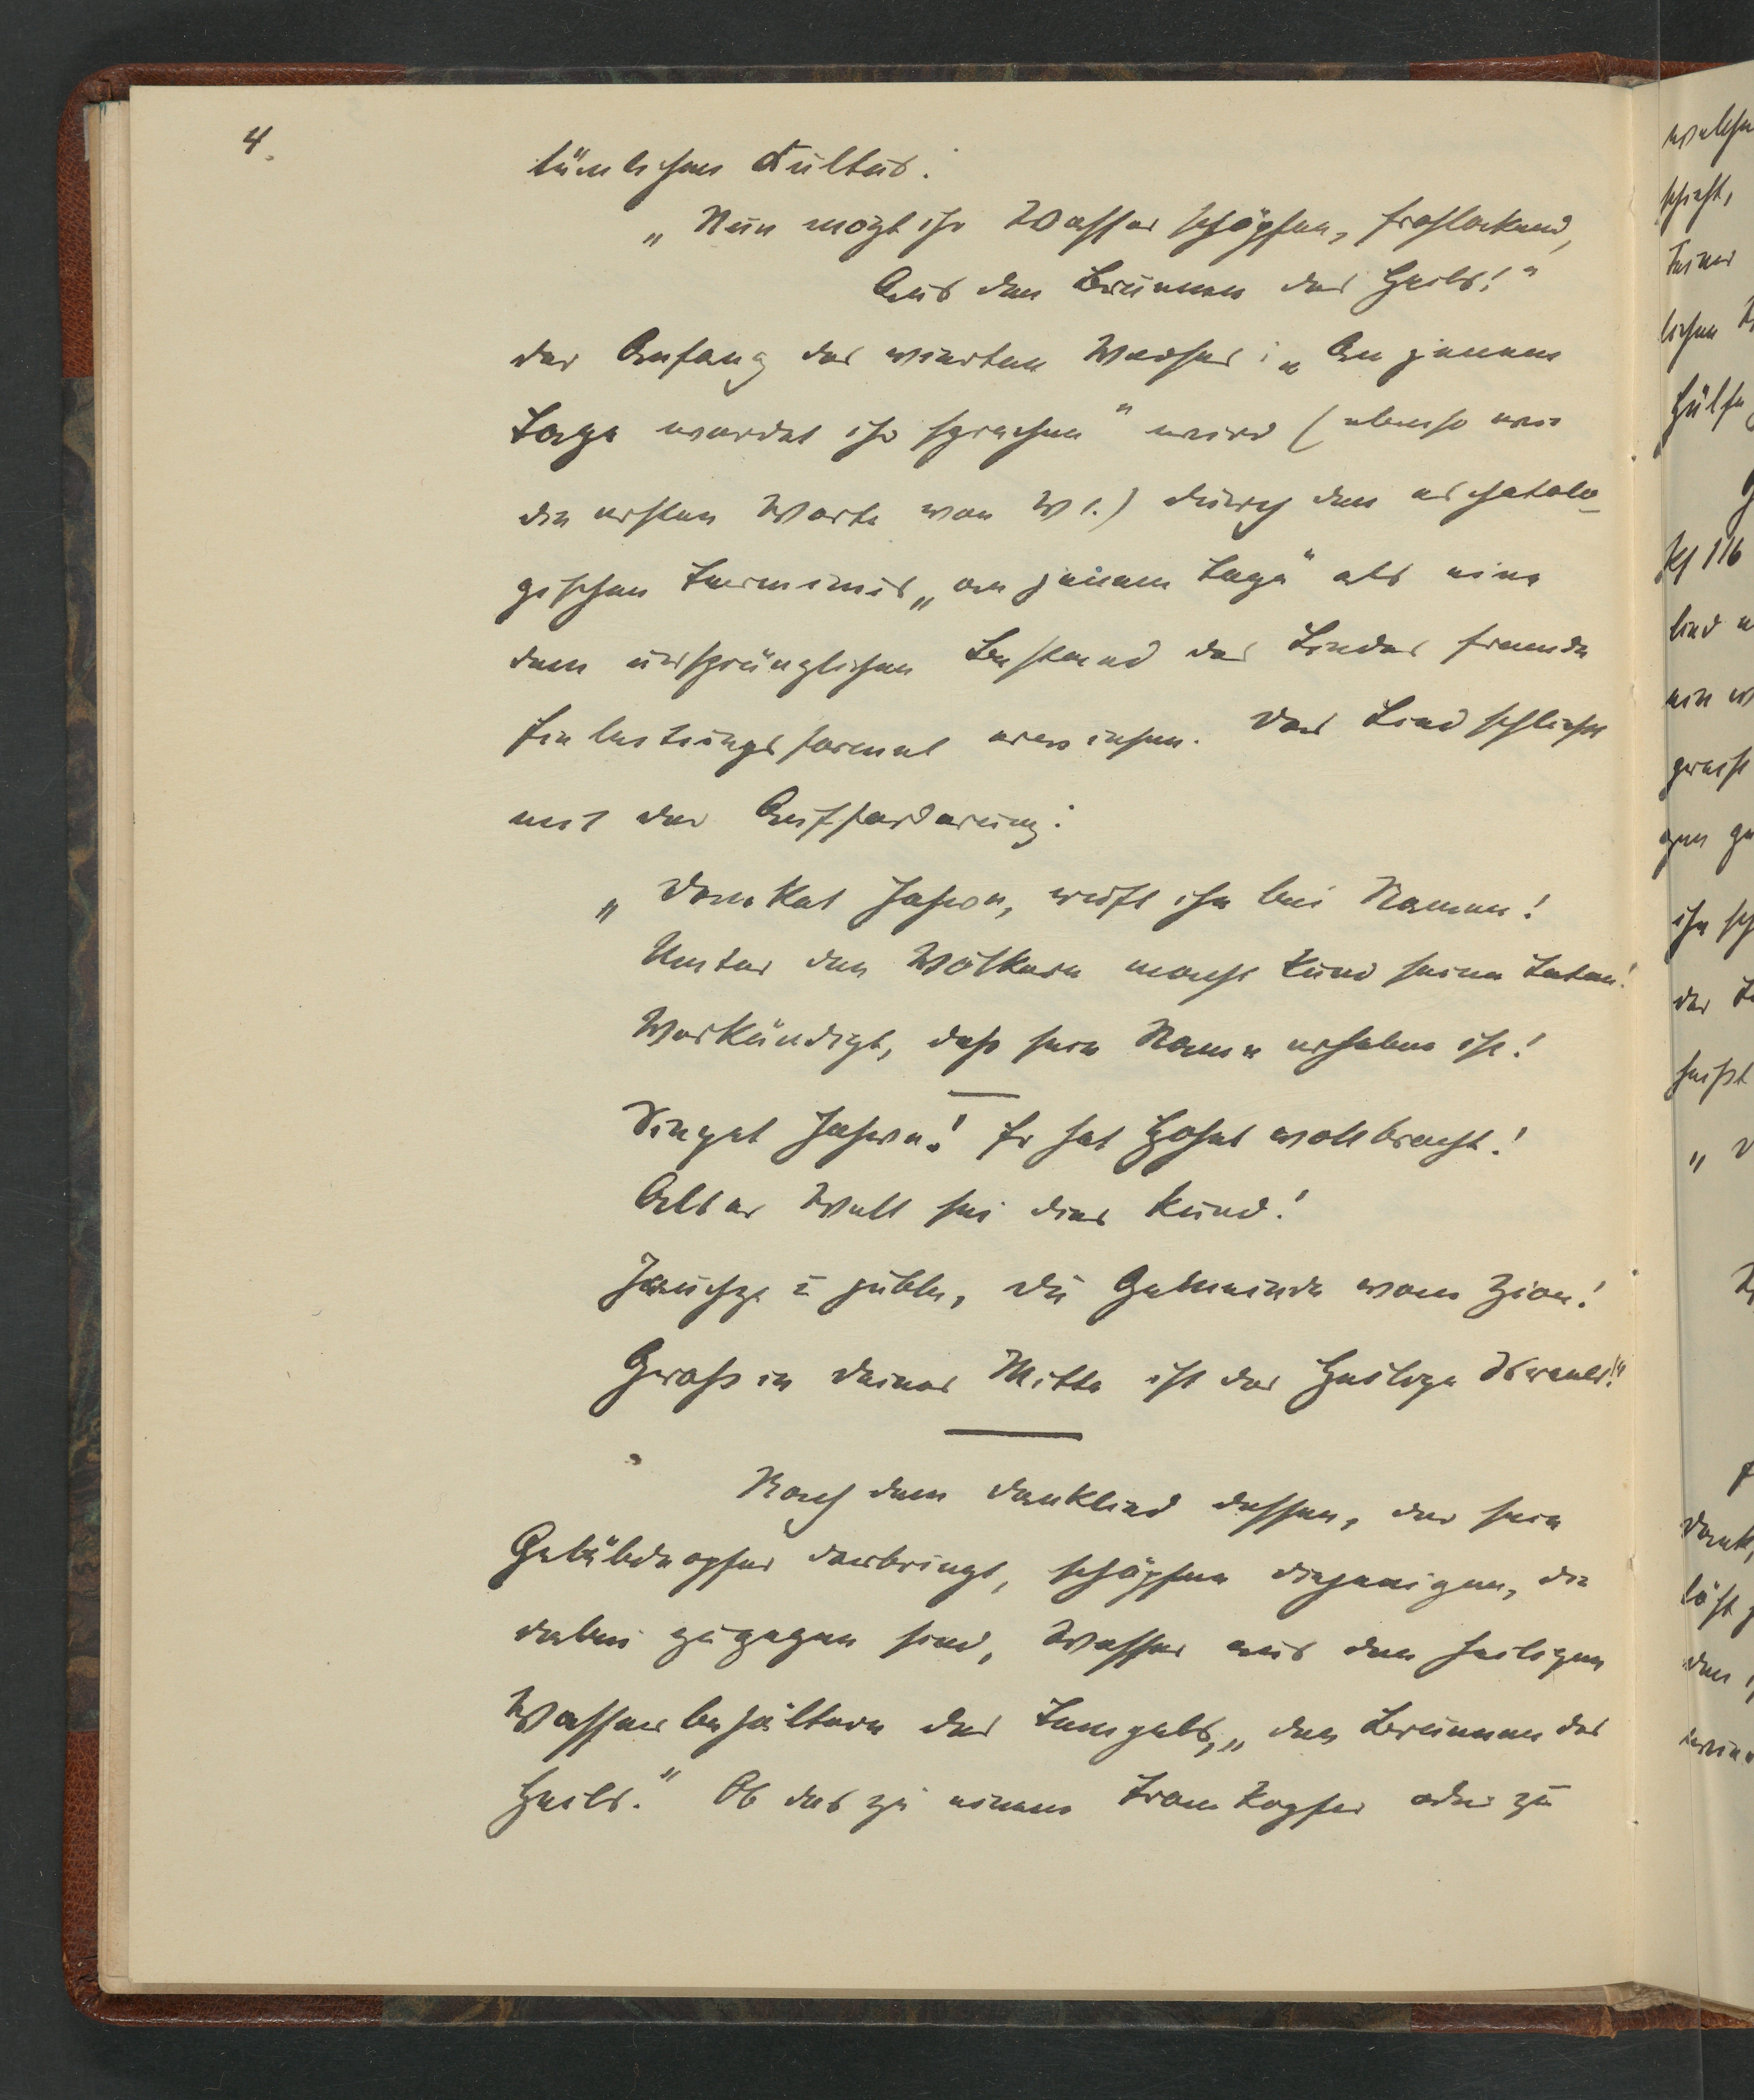 4.
tümlichen Kultus:
„Nun mögt ihr Wasser schöpfen, frohlockend,
Aus den Brunnen des Heils!“
der Anfang des vierten Verses: „An jenem
Tage werdet ihr sprechen“ wird (ebenso wie
die ersten Worte von V 1.) durch den eschatolo-
gischen Terminus „an jenem Tage“ als eine
dem ursprünglichen Bestand des Liedes fremde
Einleitungsformel erwiesen. Das Lied schließt
mit der Aufforderung:
„Danket Jahwe, ruft ihn bei Namen!
Unter den Völkern macht kund seine Taten!
Verkündigt, daß sein Name erhaben ist!
Singet Jahwe! Er hat Hohes vollbracht!
Aller Welt sei dies kund!
Jauchze u juble, du Gemeinde vom Zion!
Groß in deiner Mitte ist der Heilige Israels!“
Nach dem Danklied dessen, der sein
Gelübdeopfer darbringt, schöpfen diejenigen, die
dabei zugegen sind, Wasser aus den heiligen
Wasserbehältern des Tempels, „den Brunnen des
Heils.“ Ob das zu einem Trankopfer oder zu
welche
schicht,
Feier
lichen
Hülfe
Ps 116
lied
ein
ihn
der
heißt
Dank,
läßt
den